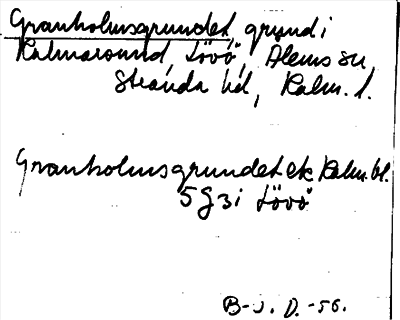 Granholmsgrundet, grund i
Kalmarsund, Lövö, Ålems sn,
Stranda hd, Kalm. l.
Granholmsgrundet ek Kalm. bl.
5 G 3 i Lövö
B-J. D. -56.